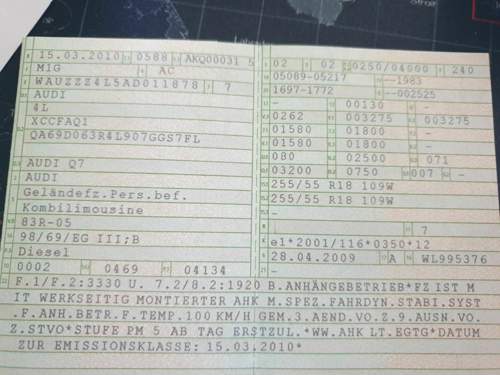 15.03.2010 0588 AKQ00031 5
M1G AC
WAUZZZ4L5AD011878 7
AUDI
4L
XCCFAQ1
QA69D063R4L907GGS7FL
AUDI Q7
AUDI
Geländefz.Pers.bef.
Kombilimousine
83R-05
98/69/EG III;B
Diesel
0002 0469 04134
02 02 0250/04000 240
05089-05217 --1983
1697-1772 --002525
- 00130 -
0262 003275 003275
01580 01800 -
01580 01800 -
080 02500 071
03200 0750 007 -
255/55 R18 109W
255/55 R18 109W
-
- 7
e1*2001/116*0350*12
28.04.2009 A WL995376
-
F.1/F.2:3330 U. 7.2/8.2:1920 B.ANHÄNGEBETRIEB*FZ IST M
IT WERKSEITIG MONTIERTER AHK M.SPEZ.FAHRDYN.STABI.SYST
.F.ANH.BETR.F.TEMP.100 KM/H GEM.3.AEND.VO.Z.9.AUSN.VO.
Z.STVO*STUFE PM 5 AB TAG ERSTZUL.*WW.AHK LT.EGTG*DATUM
ZUR EMISSIONSKLASSE: 15.03.2010*